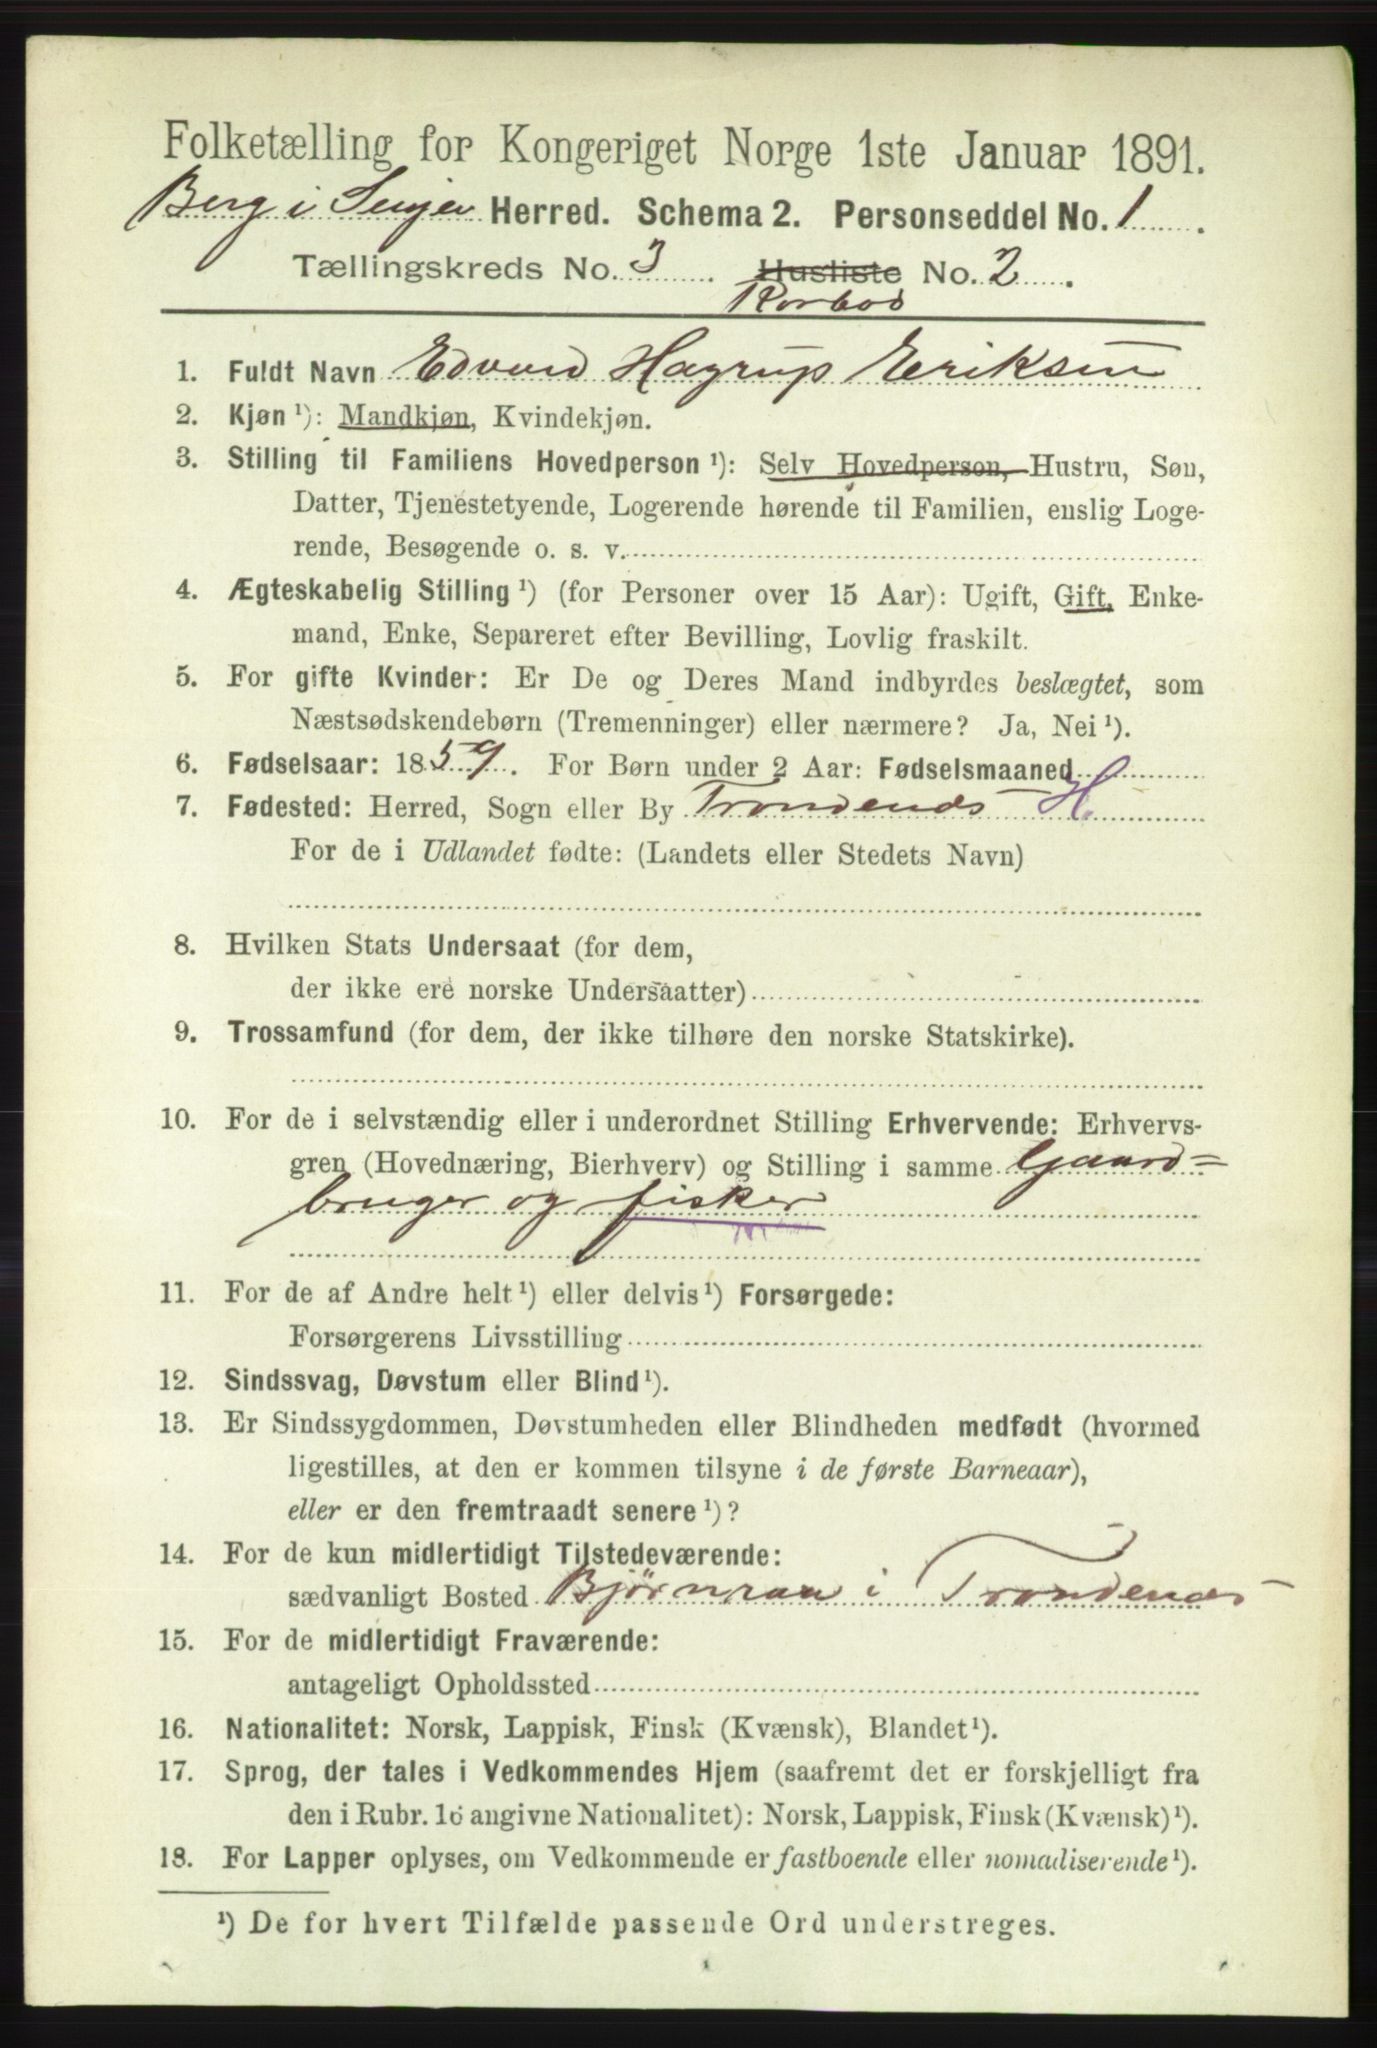 Folketælling for Kongeriget Norge 1ste Januar 1891.
Berg i Senjen Herred. Schema 2. Personseddel No. 1.
Tællingskreds No. 3. Husliste No. 2.
Rorbod
1. Fuldt Navn Edvard Hagrup Eriksen
2. Kjøn ¹): Mandkjøn, Kvindekjøn.
3. Stilling til Familiens Hovedperson ¹): Selv Hovedperson, Hustru, Søn,
Datter, Tjenestetyende, Logerende hørende til Familien, enslig Loge-
rende, Besøgende o. s. v.
4. Ægteskabelig Stilling ¹) (for Personer over 15 Aar): Ugift, Gift, Enke-
mand, Enke, Separeret efter Bevilling, Lovlig fraskilt.
5. For gifte Kvinder: Er De og Deres Mand indbyrdes beslægtet, som
Næstsødskendebørn (Tremenninger) eller nærmere? Ja, Nei ¹).
6. Fødselsaar: 1859. For Børn under 2 Aar: Fødselsmaaned
7. Fødested: Herred, Sogn eller By Trondenes H.
For de i Udlandet fødte: (Landets eller Stedets Navn)
8. Hvilken Stats Undersaat (for dem,
der ikke ere norske Undersaatter)
9. Trossamfund (for dem, der ikke tilhøre den norske Statskirke).
10. For de i selvstændig eller i underordnet Stilling Erhvervende: Erhvervs-
gren (Hovednæring, Bierhverv) og Stilling i samme Gaard=
bruger og fisker
11. For de af Andre helt ¹) eller delvis ¹) Forsørgede:
Forsørgerens Livsstilling
12. Sindssvag, Døvstum eller Blind ¹).
13. Er Sindssygdommen, Døvstumheden eller Blindheden medfødt (hvormed
ligestilles, at den er kommen tilsyne i de første Barneaar),
eller er den fremtraadt senere ¹)?
14. For de kun midlertidigt Tilstedeværende:
sædvanligt Bosted Bjørnraa i Trondenes
15. For de midlertidigt Fraværende:
antageligt Opholdssted
16. Nationalitet: Norsk, Lappisk, Finsk (Kvænsk), Blandet ¹).
17. Sprog, der tales i Vedkommendes Hjem (saafremt det er forskjelligt fra
den i Rubr. 16 angivne Nationalitet): Norsk, Lappisk, Finsk (Kvænsk) ¹).
18. For Lapper oplyses, om Vedkommende er fastboende eller nomadiserende ¹).
¹) De for hvert Tilfælde passende Ord understreges.